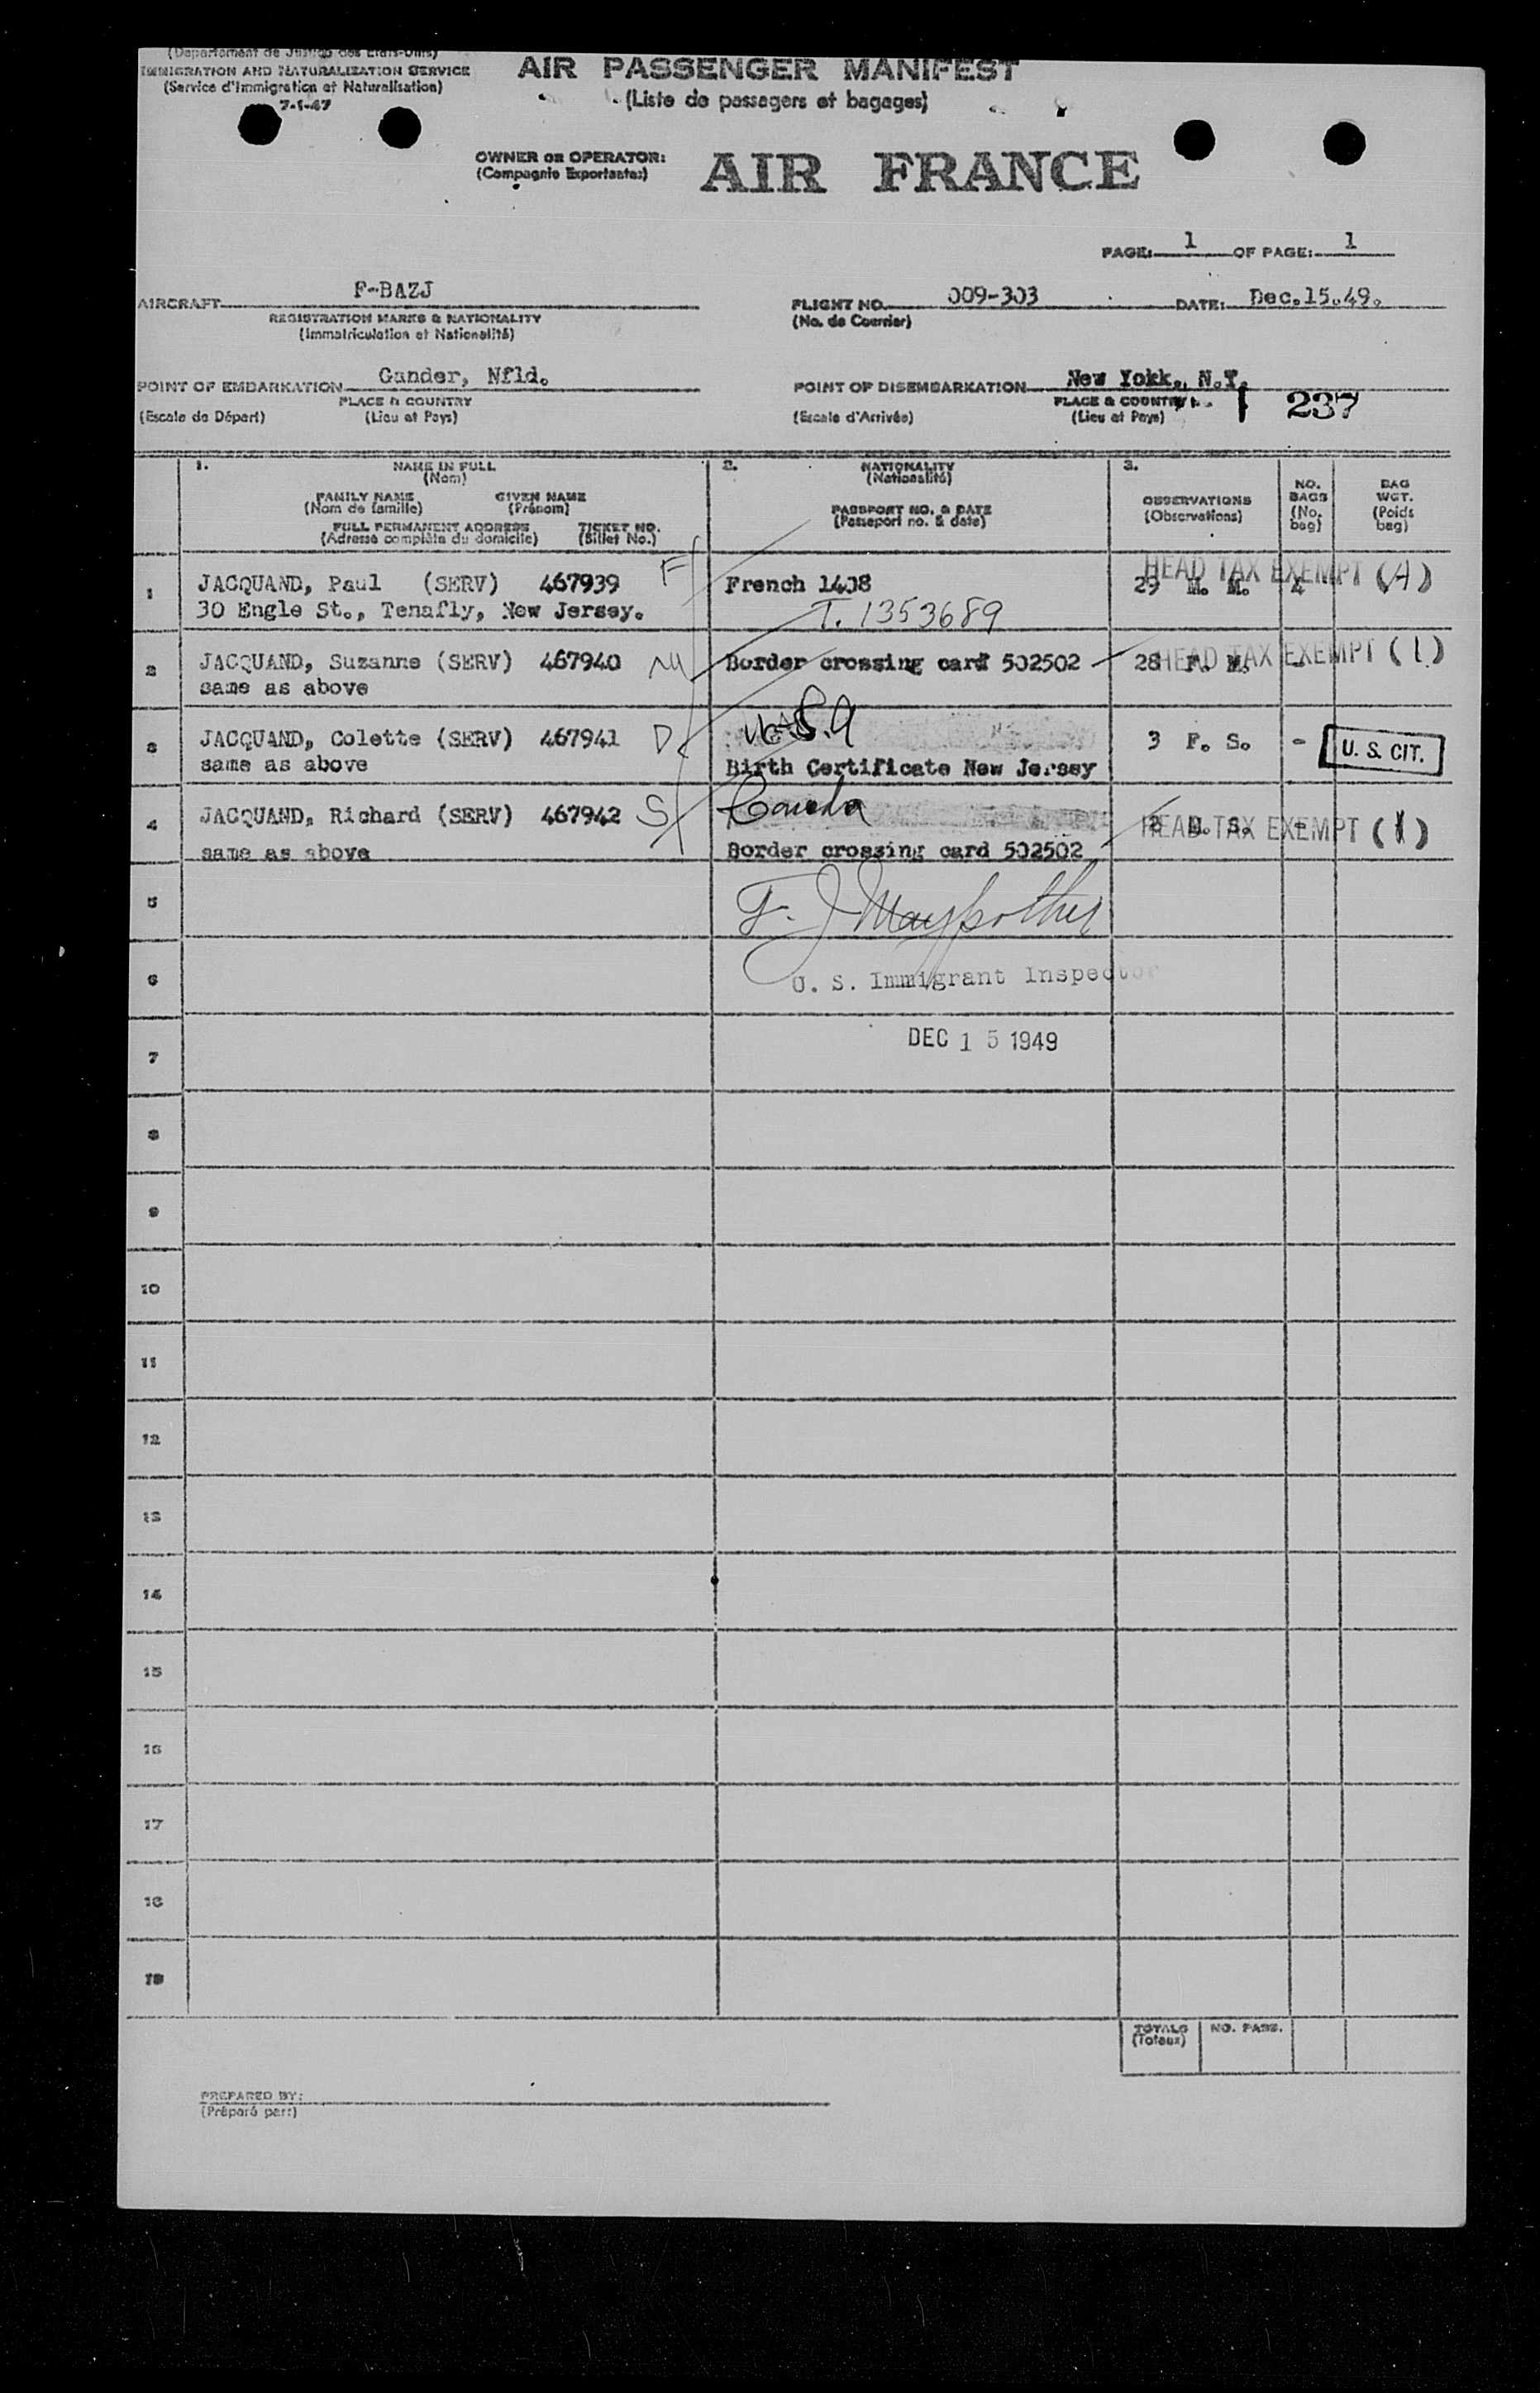 (Departement de Justice des Etats-Unis)
IMMIGRATION AND NATURALIZATION SERVICE
(Service d'Immigration et Naturalisation)
7-1-47
AIR PASSENGER MANIFEST
(Liste de passagers et bagages)
OWNER OR OPERATOR:
(Compagnie Exportante:)
AIR FRANCE
PAGE: 1 OF PAGE: 1
AIRCRAFT F-BAZJ
REGISTRATION MARKS & NATIONALITY
(Immatriculation et Nationalité)
FLIGHT NO. 009-303 DATE: Dec.15.49.
(No. de Courrier)
POINT OF EMBARKATION Gander, Nfld.
PLACE & COUNTRY
(Escale de Départ) (Lieu et Pays)
POINT OF DISEMBARKATION New Yokk., N.Y.
PLACE & COUNTRY
(Escale d'Arrivée) (Lieu et Pays)
237
1. NAME IN FULL
(Nom)
FAMILY NAME GIVEN NAME
(Nom de famille) (Prénom)
FULL PERMANENT ADDRESS TICKET NO.
(Adresse complète du domicile) (Billet No.)
2. NATIONALITY
(Nationalité)
PASSPORT NO. & DATE
(Passeport no. & date)
3.
OBSERVATIONS
(Observations)
NO. BAGS
(No. bag)
BAG WGT.
(Poids bag)
1 JACQUAND, Paul (SERV) 467939 F French 1408 29 M. M. 4 HEAD TAX EXEMPT (A)
30 Engle St., Tenafly, New Jersey. T. 1353689
2 JACQUAND, Suzanne (SERV) 467940 M Border crossing card 502502 28 F. M. - HEAD TAX EXEMPT (1)
same as above
3 JACQUAND, Colette (SERV) 467941 D U.S.A 3 F. S. - U. S. CIT.
same as above Birth Certificate New Jersey
4 JACQUAND, Richard (SERV) 467942 S Canada M. S. - HEAD TAX EXEMPT (1)
same as above Border crossing card 502502
5
F. J.
6
U. S. Immigrant Inspector
7
DEC 15 1949
8
9
10
11
12
13
14
15
16
17
18
19
TOTALS NO. PASS.
(Totaux)
PREPARED BY:
(Préparé par:)